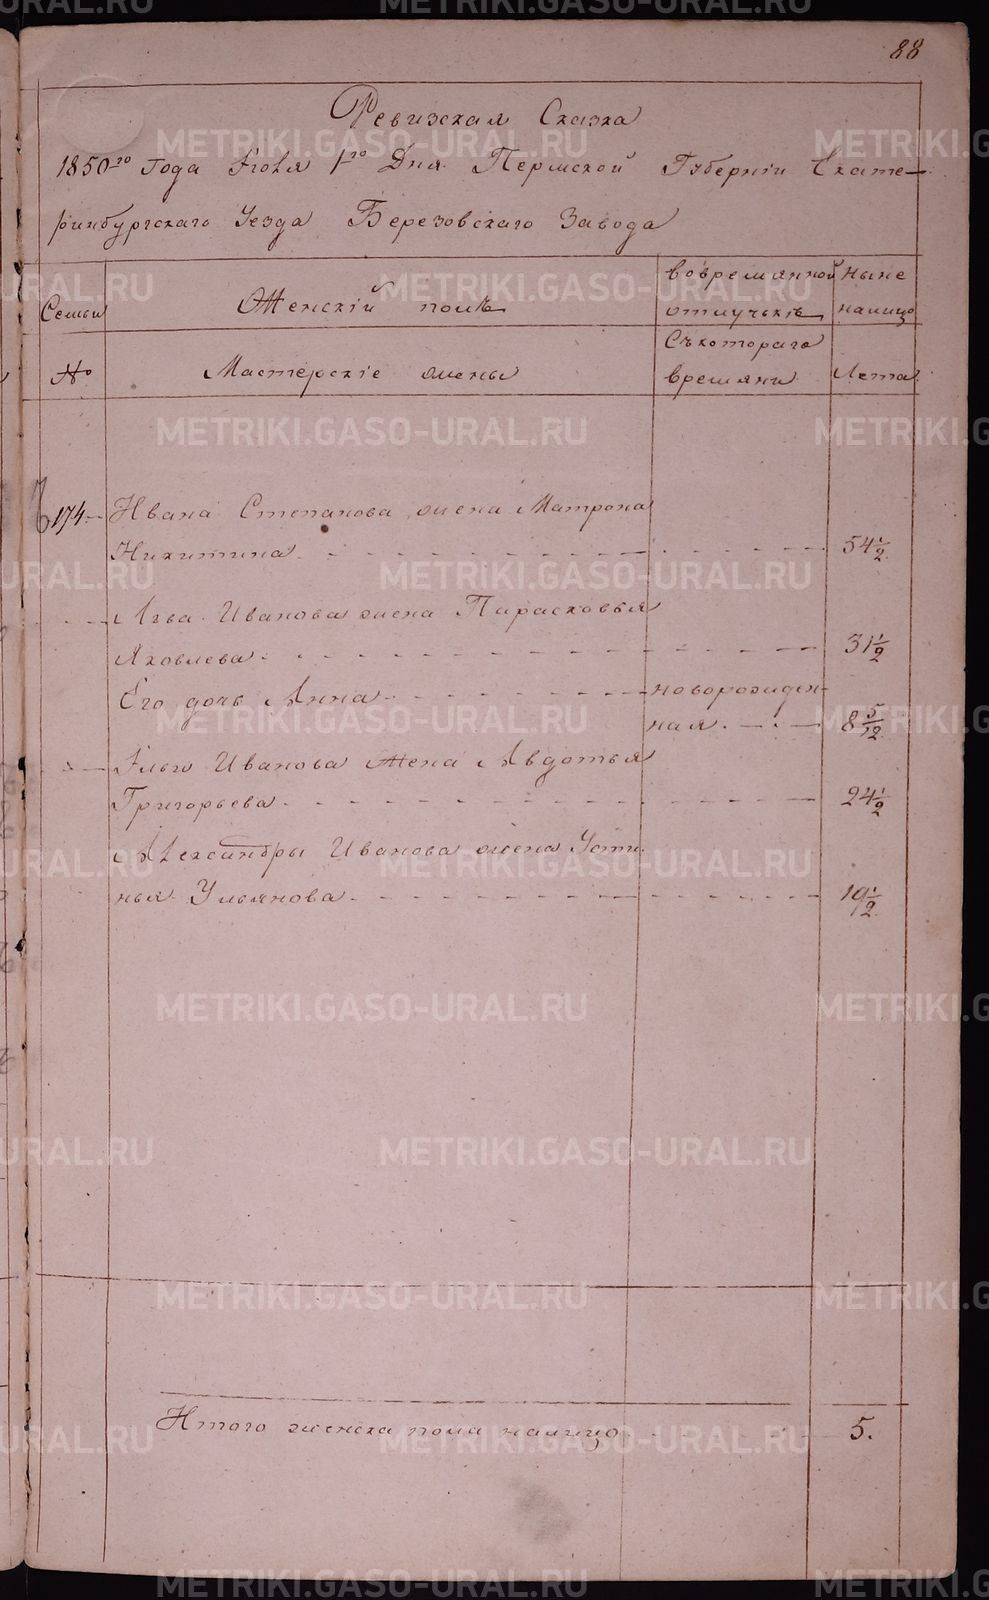 88
Ревизская Сказка
1850го года Іюля 1го Дня Пермской Губерніи Екате-
ринбургскаго Уезда Березовскаго Завода
Семьи
Женскій полъ
вовремянной
отлучькѣ
ныне
налицо
№
Мастерскіе жены
Съкотораго
времяни
Лета
174 Ивана Степанова жена Матрона
Никитина 54 1/2
Лгва Иванова жена Парасковья
Яковлева 31 1/2
Его дочь Анна новорожден-
ная 8 5/12
Ильи Иванова Жена Авдотья
Григорьева 24 1/2
Александры Иванова жена Усти
нья Ульянова 19 1/2
Итого женска пола налицо 5.
METRIKI.GASO-URAL.RU